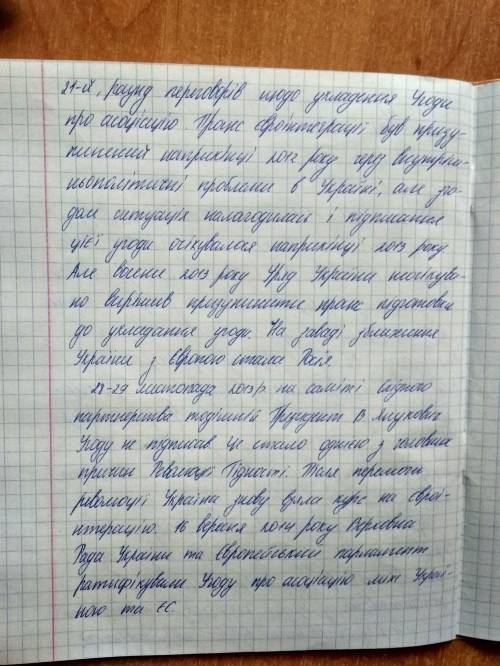 21-й, раунд переговорів щодо укладення Угоди
про асоціацію. Транс євроінтеграції був призу-
пинений наприкінці 2012 року через внутріш-
ньополітичні проблеми в Україні, але зго-
дом ситуація налагодилась і підписання
цієї угоди очікувалося наприкінці 2013 року.
Але восени 2013 року Уряд України неочікува-
но вирішив призупинити процес підготовки
до укладання угоди. На заваді зближення
України з Європою стала Росія.
28-29 листопада 2013р. на саміті Східного
партнерства тодішній Президент В. Янукович
Угоду не підписав. Це стало однією з головних
причин Революції Гідності. Після перемоги
революції Україна знову взяла курс на євроін-
інтеграцію. 16 вересня 2014 року Верховна
Рада України та Європейський парламент
ратифікували Угоду про асоціацію між Украї-
ною та ЄС.